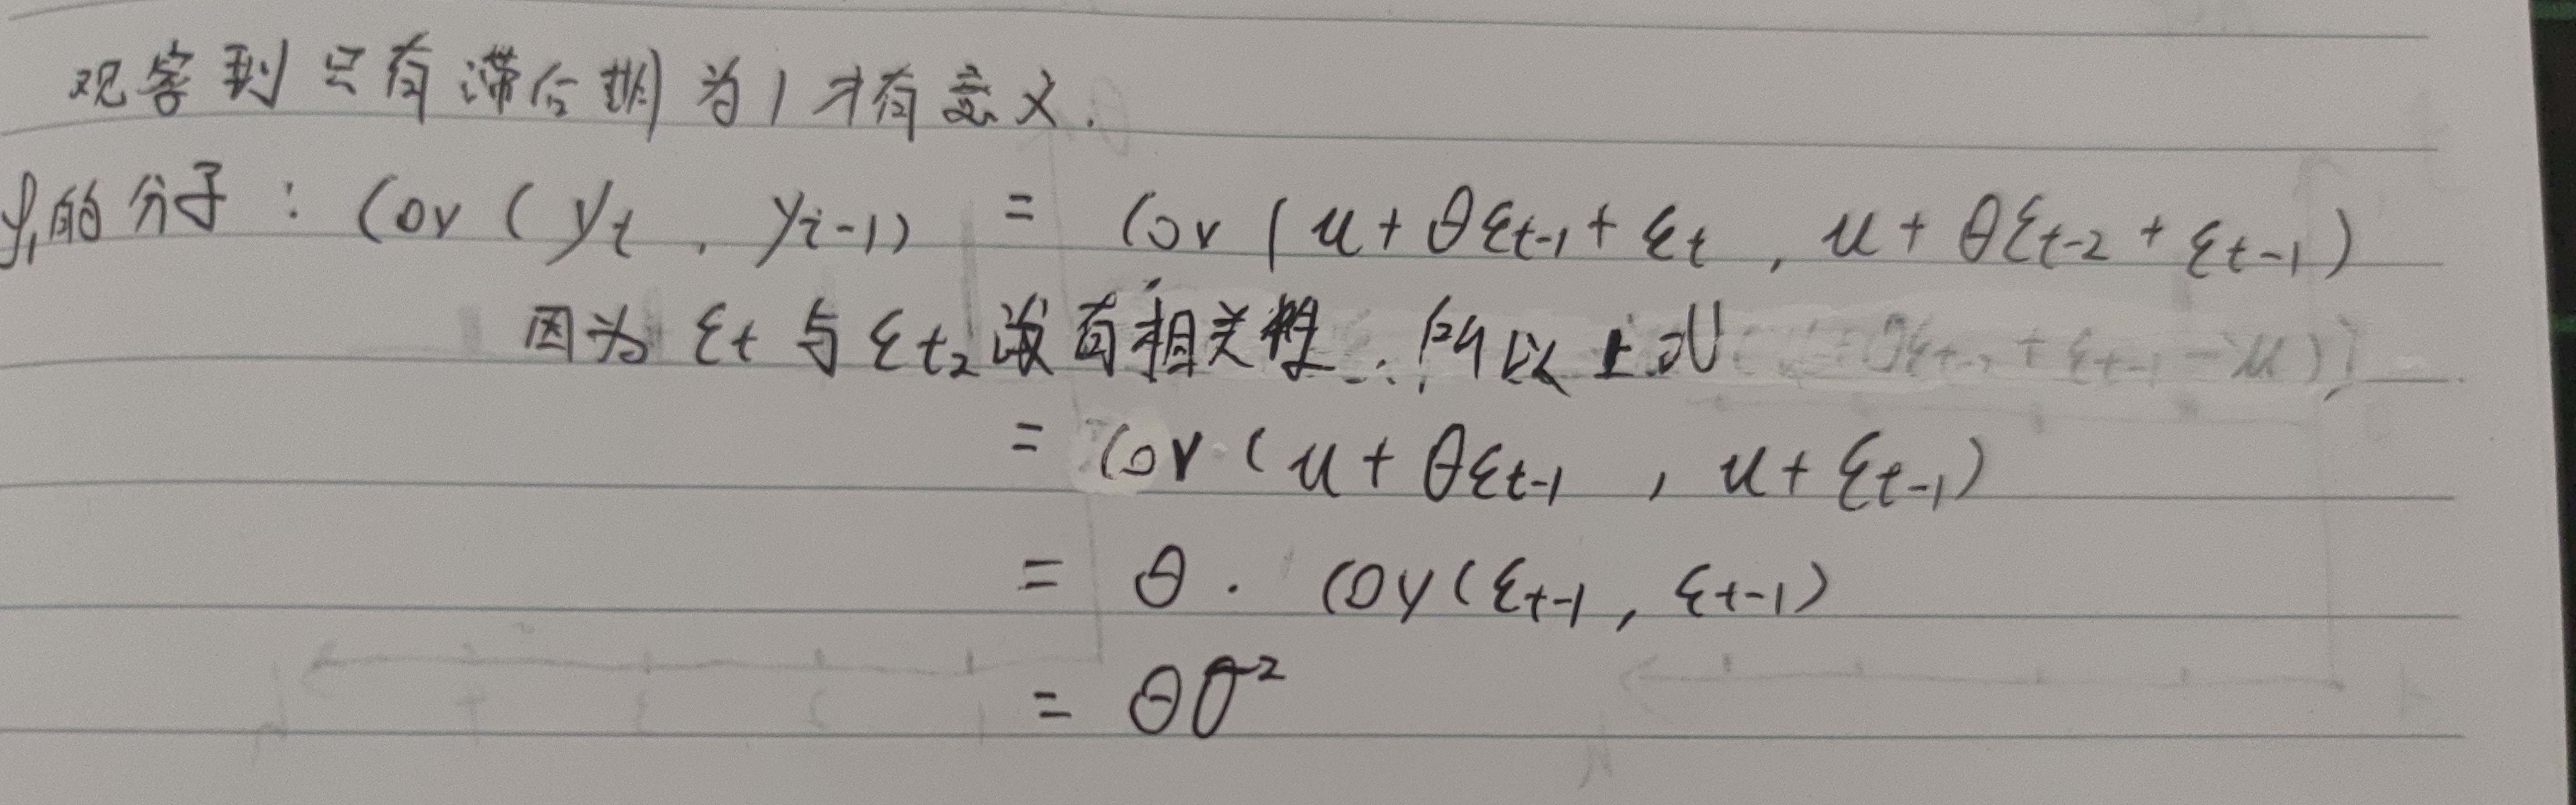 观察到只有滞后期为1才有意义.
ρ₁的分子: Cov(yₜ, yᵢ₋₁) = Cov(u+θεₜ₋₁+εₜ, u+θεₜ₋₂+εₜ₋₁)
因为 εₜ 与 εₜ₂ 没有相关性. 所以上式
= Cov(u+θεₜ₋₁, u+εₜ₋₁)
= θ · Cov(εₜ₋₁, εₜ₋₁)
= θσ²